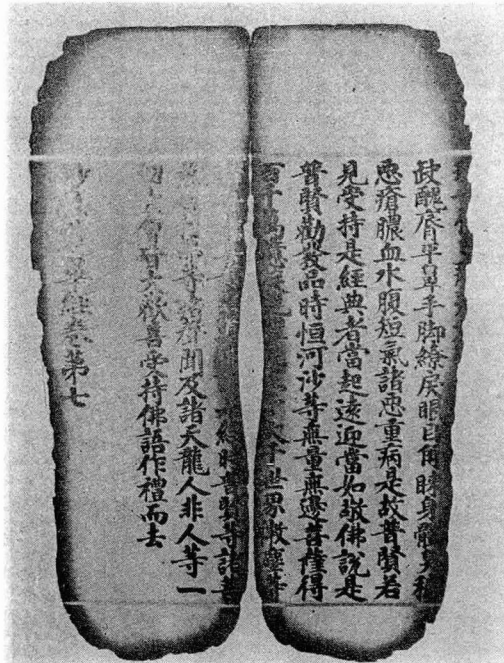 缺醜脣平鼻手脚繚戾眼目角睞身體臭穢
惡瘡膿血水腹短氣諸惡重病是故普賢若
見受持是經典者當起遠迎當如敬佛說是
普賢勸發品時恒河沙等無量無邊菩薩得
百千萬億旋世界微塵等
經時普賢等諸菩
等諸聲聞及諸天龍人非人等一
切大會皆大歡喜受持佛語作禮而去
妙法蓮華經卷第七